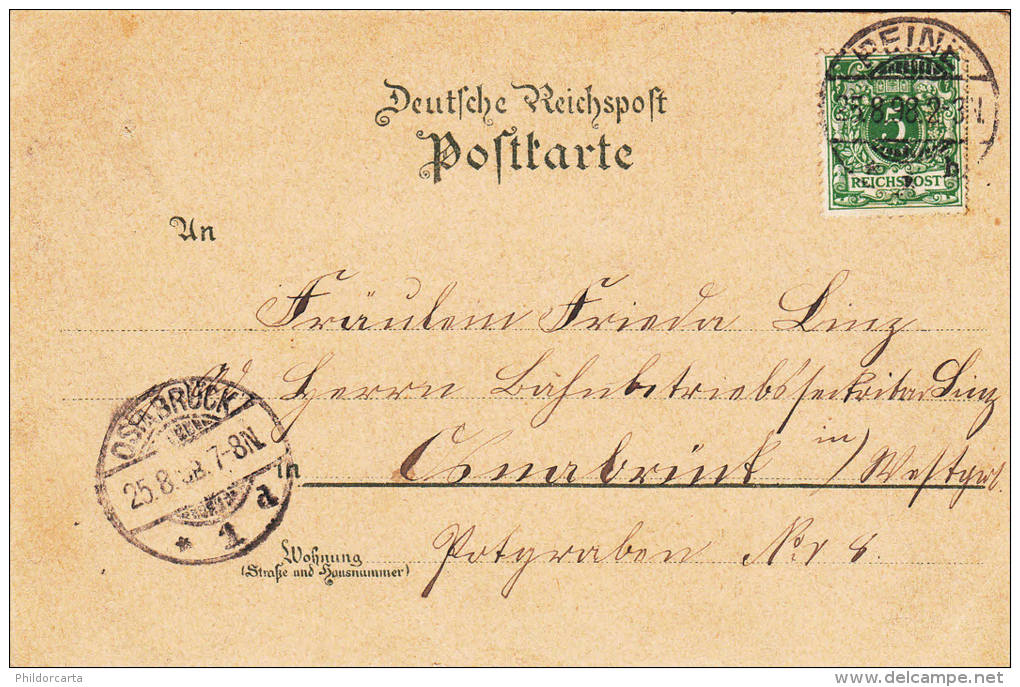 Deutsche Reichspost
Postkarte
PEINE
25.8.98.2-3N.
b
5
REICHSPOST
An
Fräulein Frieda Linz
Herrn Bahnbetriebssecretär Linz
in
Osnabrück / Westph.
OSNABRÜCK
25.8.98.7-8N.
* 1 d
in
Wohnung
(Straße und Hausnummer)
Potgraben No 8.
Phildorcarta
delcampe.net